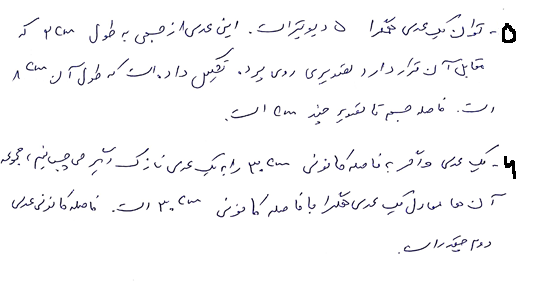 ۵- توان یک عدسی همگرا ۵ دیوپتر است. این عدسی از جسمی به طول ۲cm که
مقابل آن قرار دارد تصویری روی پرده تشکیل داده است که طول آن ۸cm
است. فاصله جسم تا تصویر چند cm است.
۶- یک عدسی واگرا به فاصله کانونی ۳۰cm را به یک عدسی نازک دیگر می چسبانیم، مجموعه
آن ها معادل یک عدسی همگرا با فاصله کانونی ۳۰cm است. فاصله کانونی عدسی
دوم چقدر است.